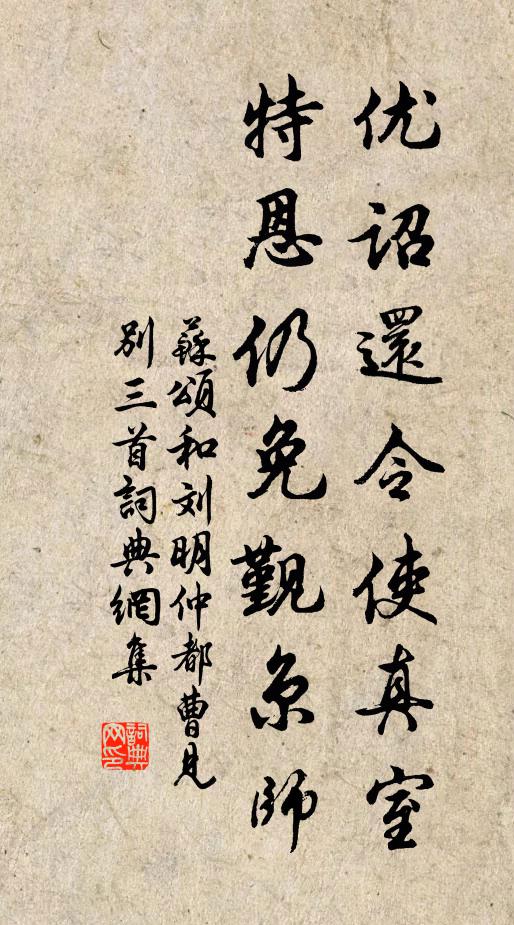 优诏還令使真室
特恩仍免觐京师
蘇頌和刘明仲都曹見
別三首詞典網集
詞典
网印